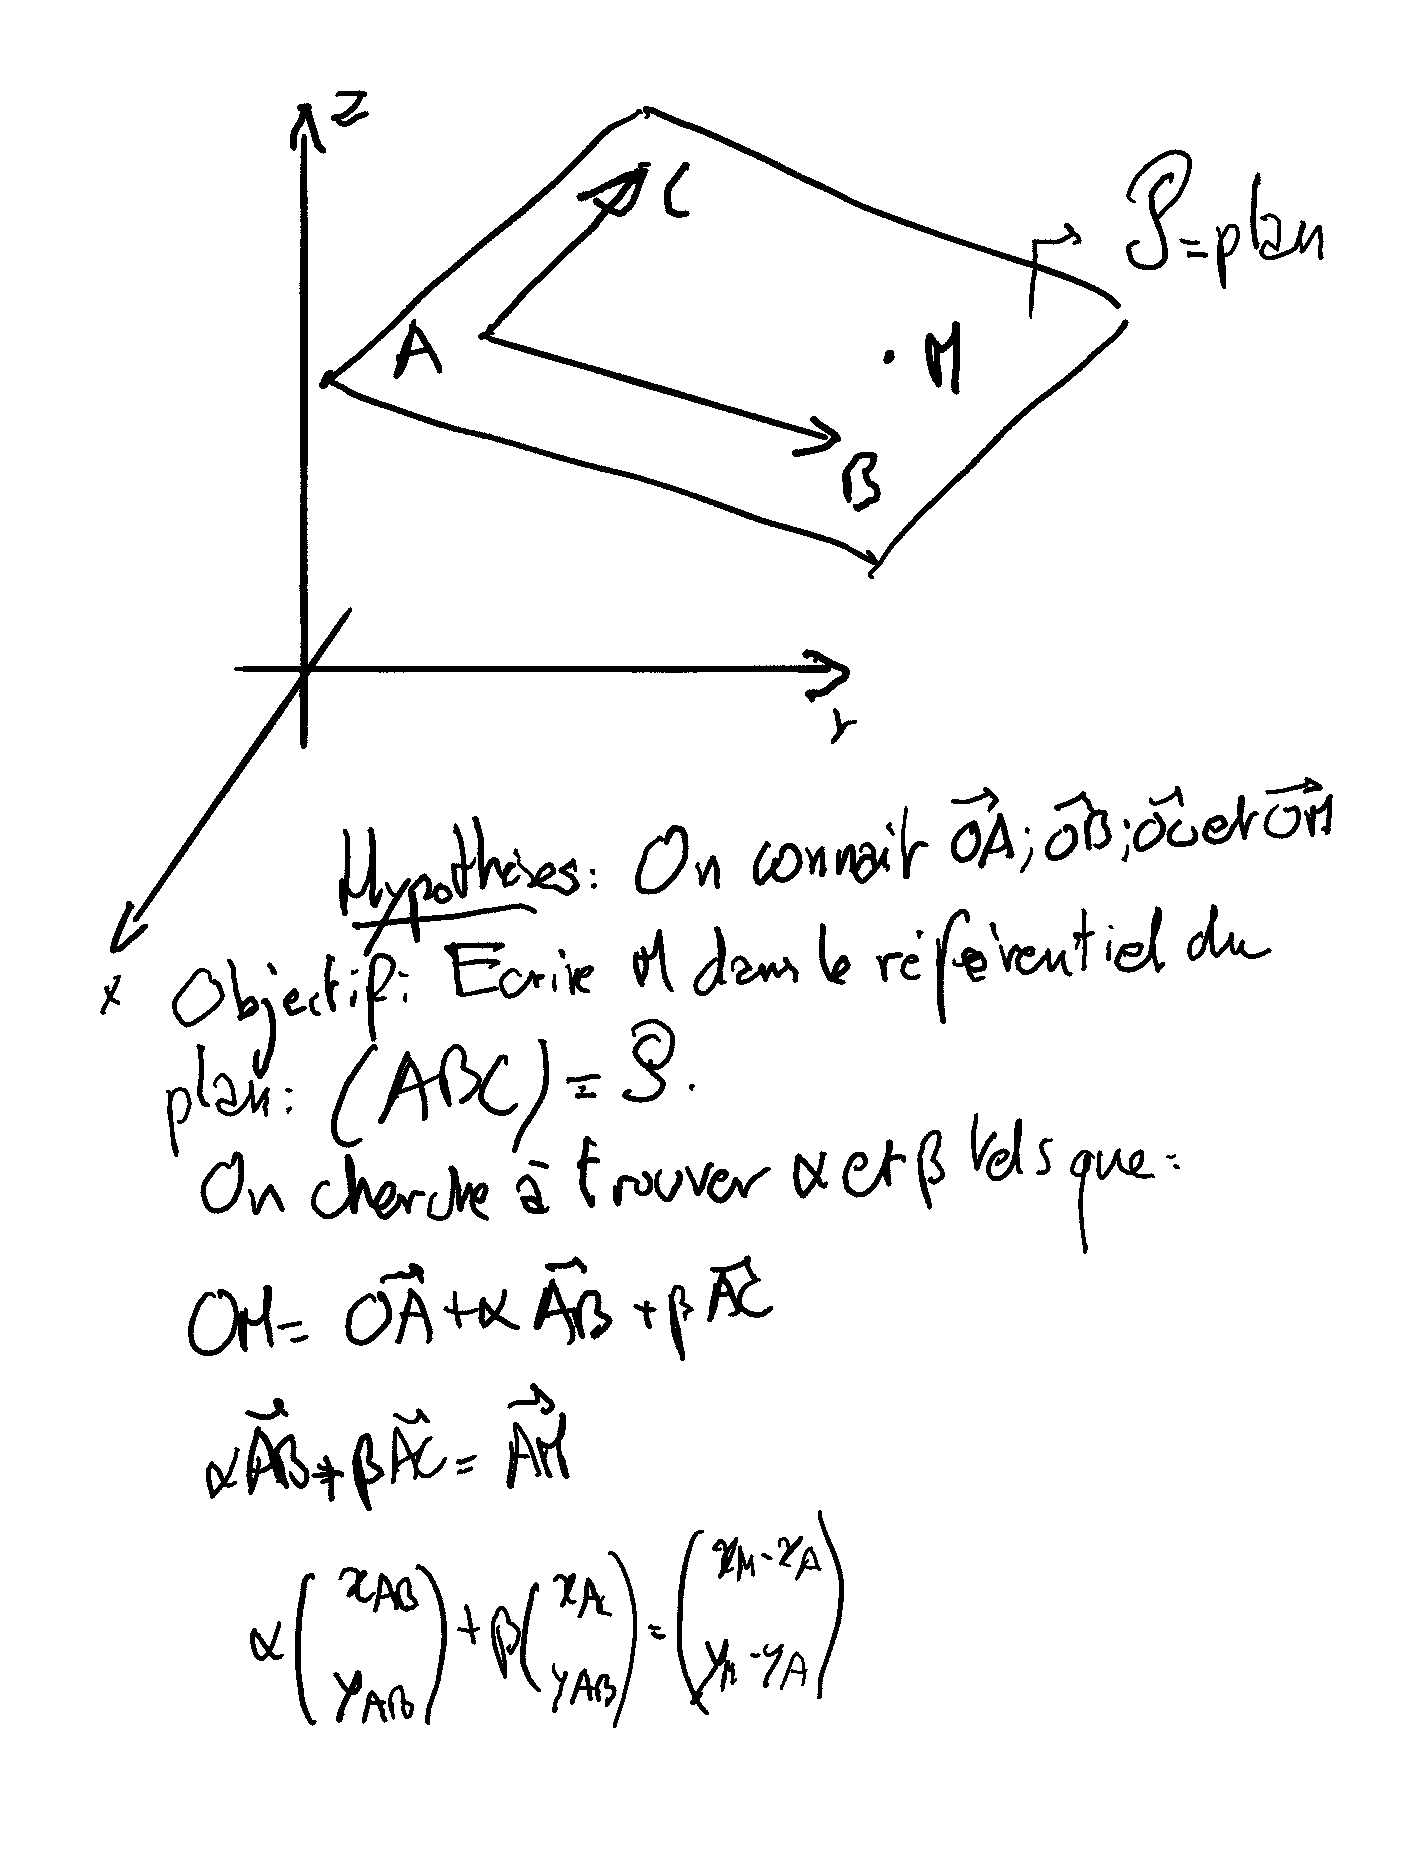 z
C
𝒫=plan
A
. M
B
y
Hypothèses: On connait \vec{OA}; \vec{OB}; \vec{OC} et \vec{OM}
x
Objectif: Ecrire M dans le référentiel du
plan: (ABC) = 𝒫.
On cherche à trouver α et β tels que:
OM = \vec{OA} + α \vec{AB} + β \vec{AC}
α\vec{AB} + β\vec{AC} = \vec{AM}
α(x_{AB} y_{AB}) + β(x_{AC} y_{AB}) = (x_M - x_A y_M - y_A)